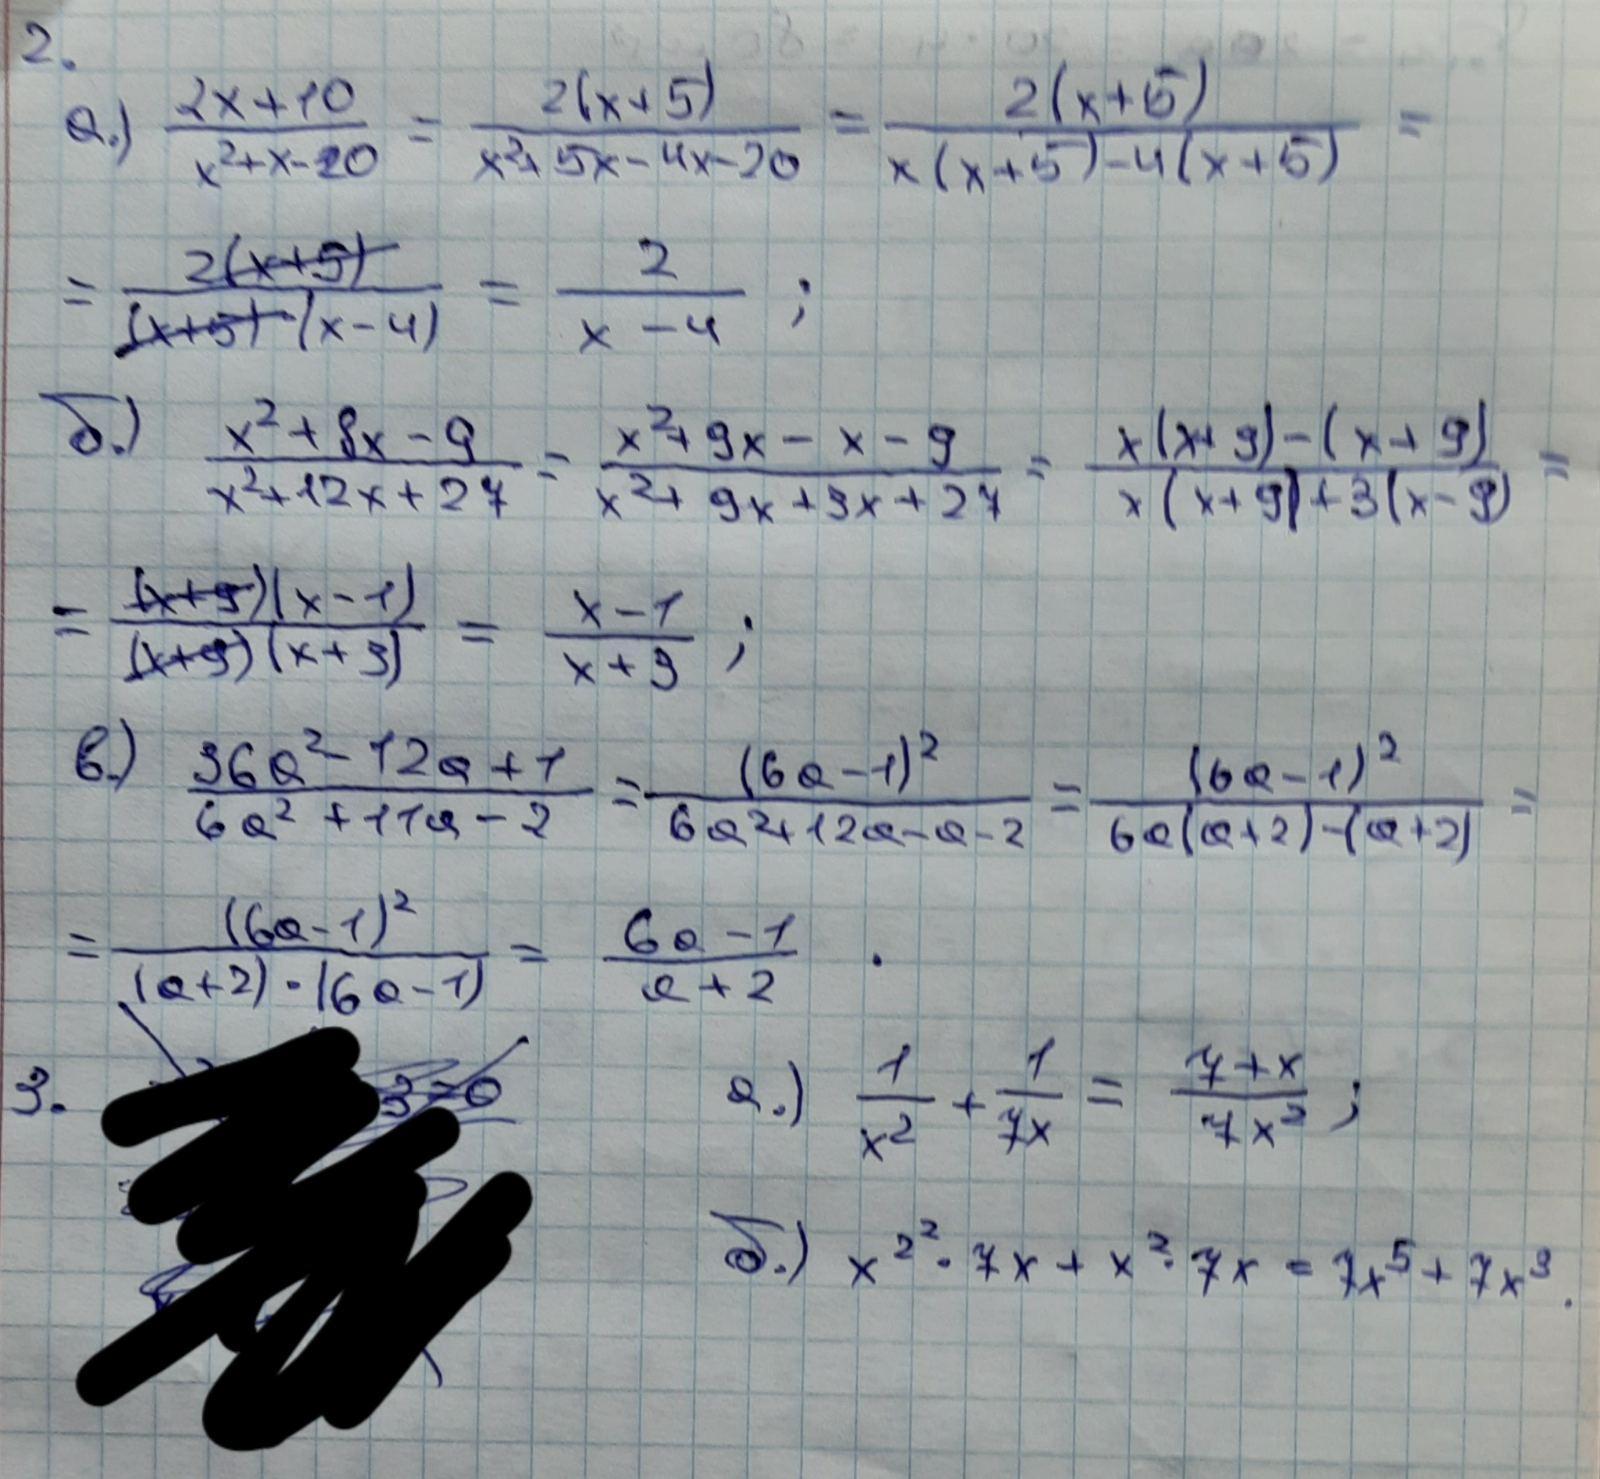 2.
а.) (2x+10)/(x²+x-20) = 2(x+5)/(x²+5x-4x-20) = 2(x+5)/(x(x+5)-4(x+5)) =
= 2(x+5)/((x+5)·(x-4)) = 2/(x-4) ;
б.) (x²+8x-9)/(x²+12x+27) = (x²+9x-x-9)/(x²+9x+3x+27) = (x(x+9)-(x+9))/(x(x+9)+3(x-9)) =
= (x+9)(x-1)/((x+9)(x+3)) = (x-1)/(x+3) ;
в.) (36a²-12a+1)/(6a²+11a-2) = (6a-1)²/(6a²+12a-a-2) = (6a-1)²/(6a(a+2)-(a+2)) =
= (6a-1)²/((a+2)·(6a-1)) = (6a-1)/(a+2) .
3.
а.) 1/x² + 1/(7x) = (7+x)/(7x²) ;
б.) x²²·7x + x²·7x = 7x⁵ + 7x³.